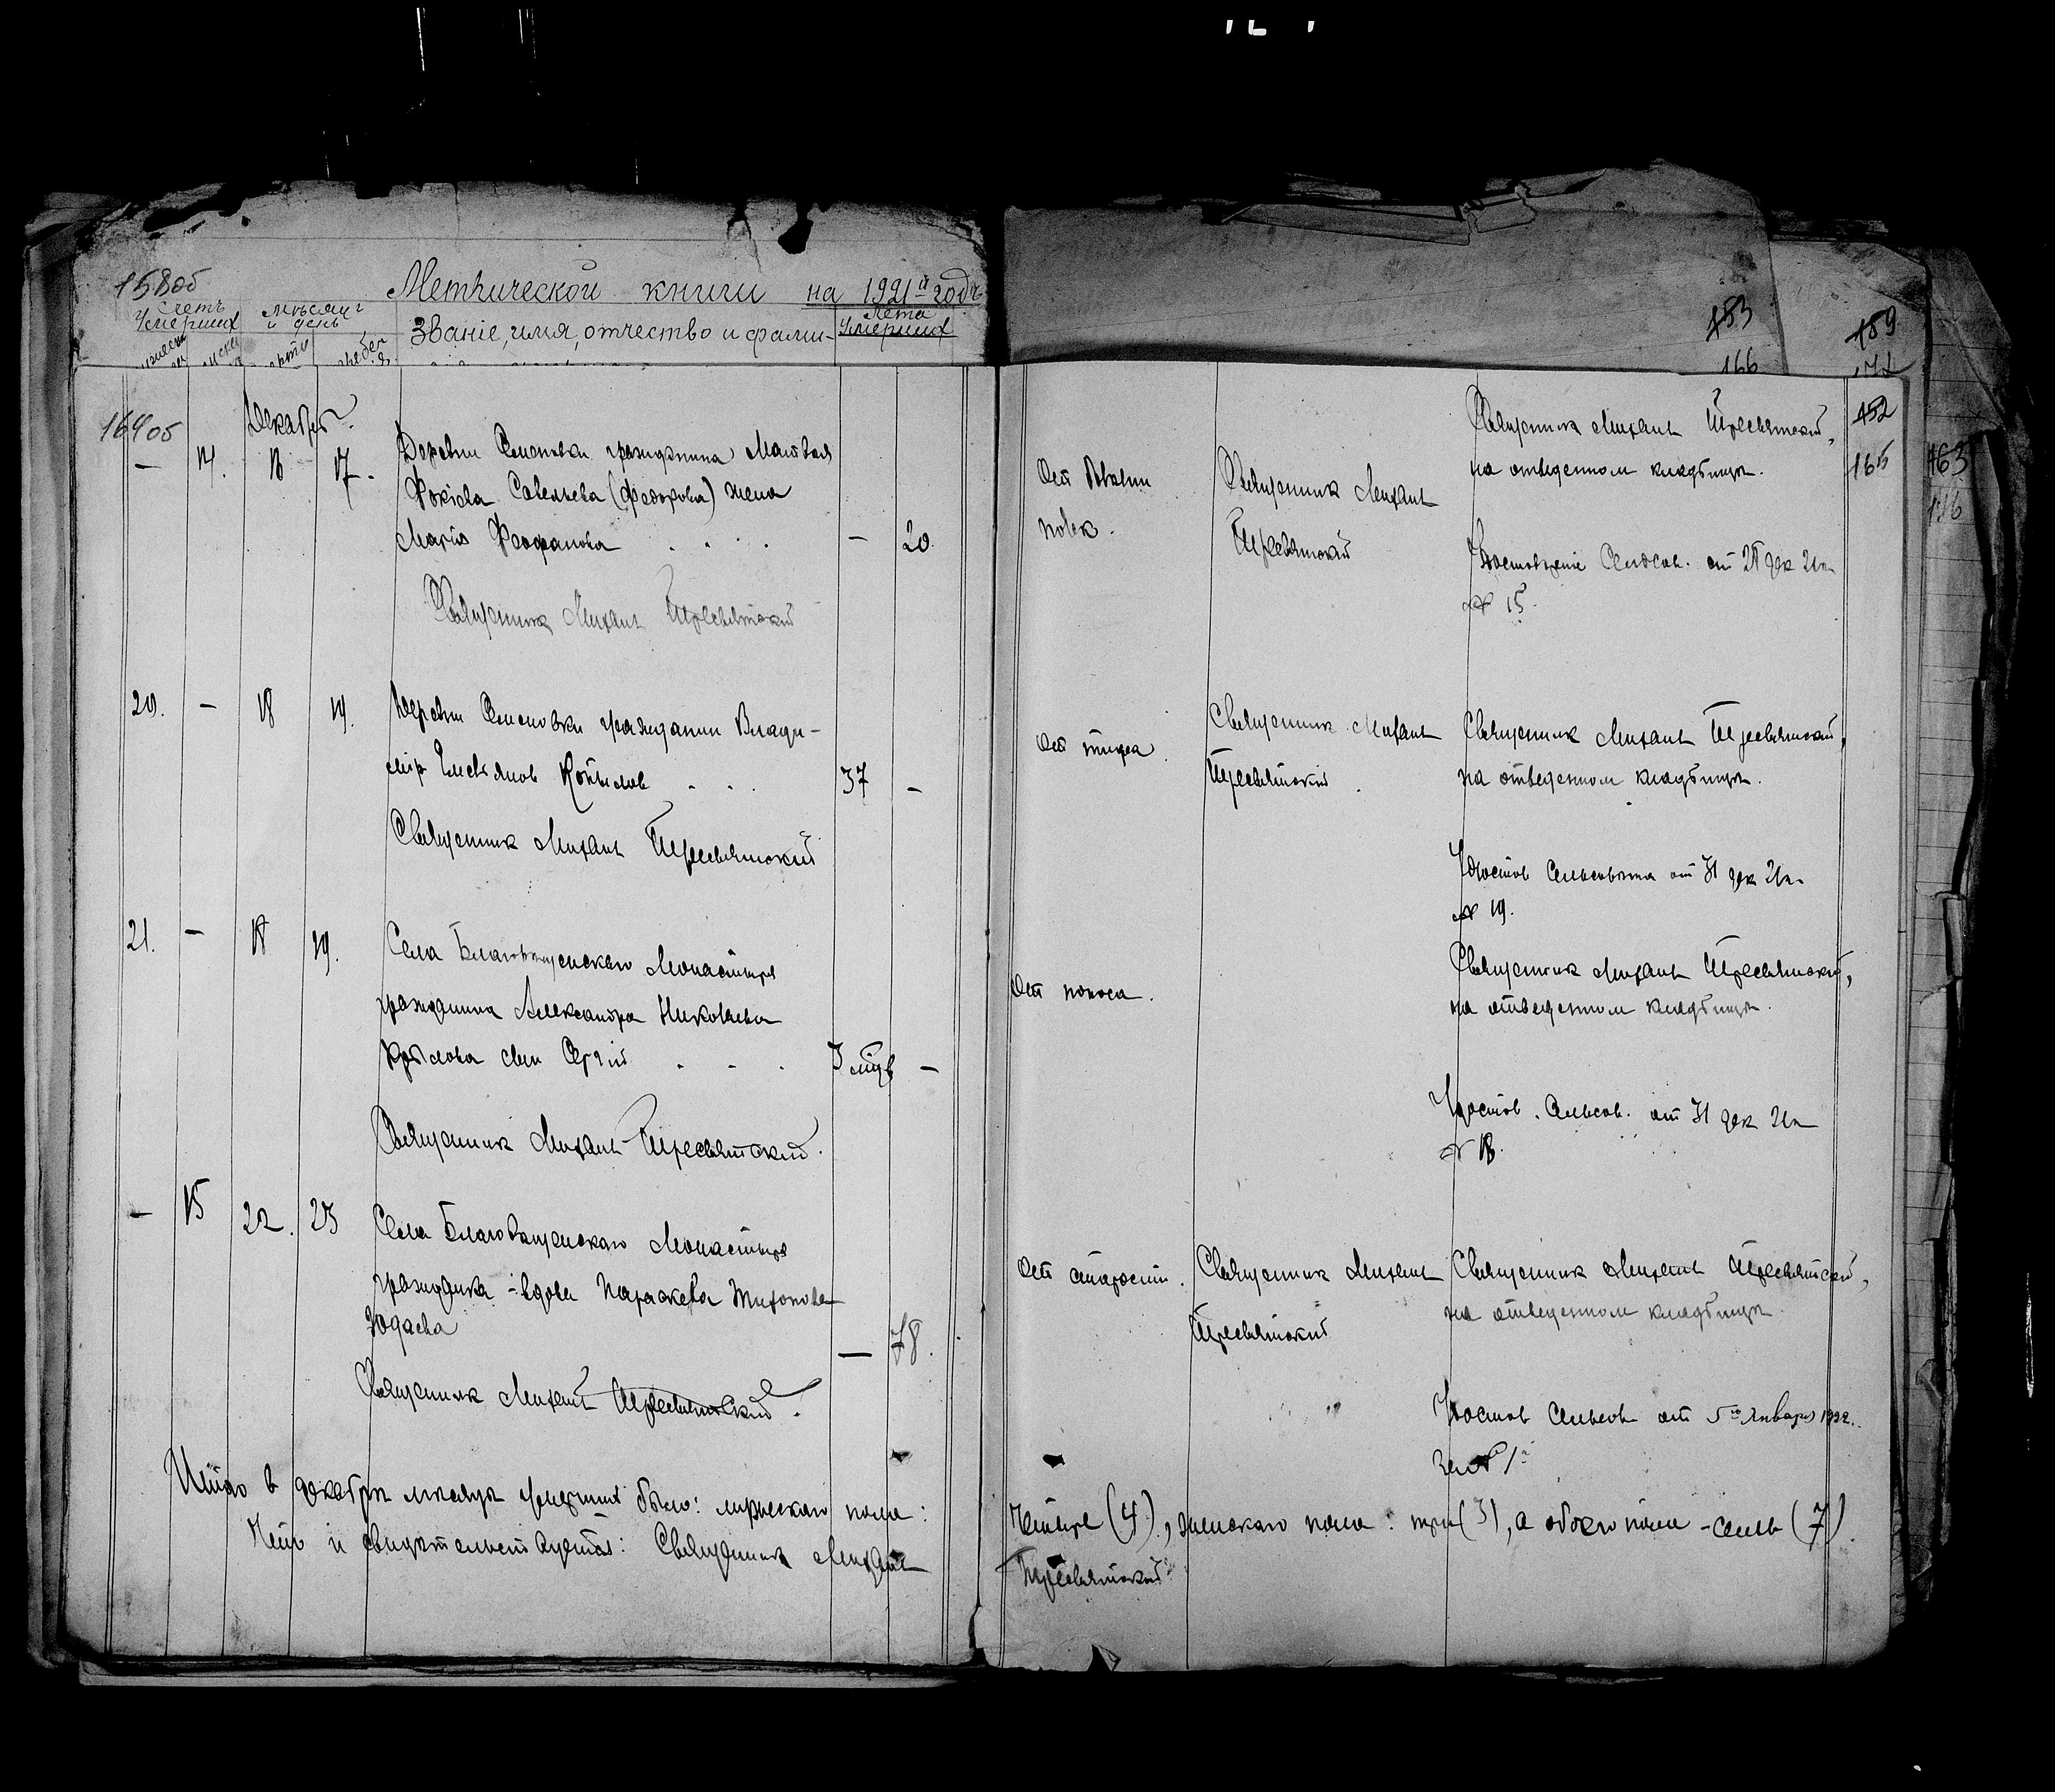 158об
Метрической книги на 1921й годъ
Счетъ умершихъ
Мѣсяцъ и день
Званіе, имя, отчество и фами-
Лета умершихъ
183
189
166
164об
Декабрь.
152
165
163
— 14. 16 17. Деревни Семеновки гражданина Матвея
Фокіева Савельева (Федорова) жена
Марія Феофанова . . . . — 20.
Священник Михаил Тресвятский
От
Священник Михаил
Тресвятский
Священник Михаил Тресвятский,
на отведенном кладбище.
Удостовѣреніе Сельсов. от дек 21 г.
№ 15.
20. — 18 19. Деревни Семеновки гражданин Влади-
мір Емельянов Копылов . . . 37 —
Священник Михаил Тресвятский
От тифа.
Священник Михаил
Тресвятский.
Священник Михаил Тресвятский,
на отведенном кладбище.
Удостов Сельсовета от 31 дек 21 г.
№ 19.
21. — 18 19. Села Благовещенскаго Монастыря
гражданина Александра Николаева
Крылова сын Сергій . . . 3 мѣс —
Священник Михаил Тресвятский.
От поноса.
Священник Михаил Тресвятский,
на отведенном кладбище.
Удостов. Сельсов. от 31 дек 21 г
№ 18.
— 15 22. 23 Села Благовещенскаго Монастыря
гражданка - вдова Параскева Тихонова
Юдаева — 78.
Священник Михаил Тресвятский.
От старости.
Священник Михаил
Тресвятский
Священник Михаил Тресвятский,
на отведенном кладбище.
Удостов Сельсов от 5го Января 1922.
за № 1й
Итого в декабре месяце умерших было: мужескаго пола: четыре (4), женскаго пола: три (3), а обоего пола - семь (7).
Что и свидетельствуется: Священник Михаил Тресвятский